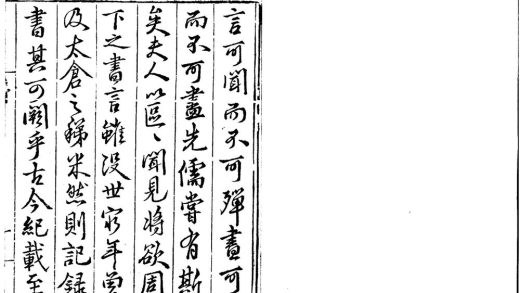 言可聞而不可殫書可
而不可盡先儒嘗有斯
矣夫人以區〻聞見將欲周
下之書言雖没世窮年曾
及太倉之稊米然則記録
書其可闕乎古今紀載至